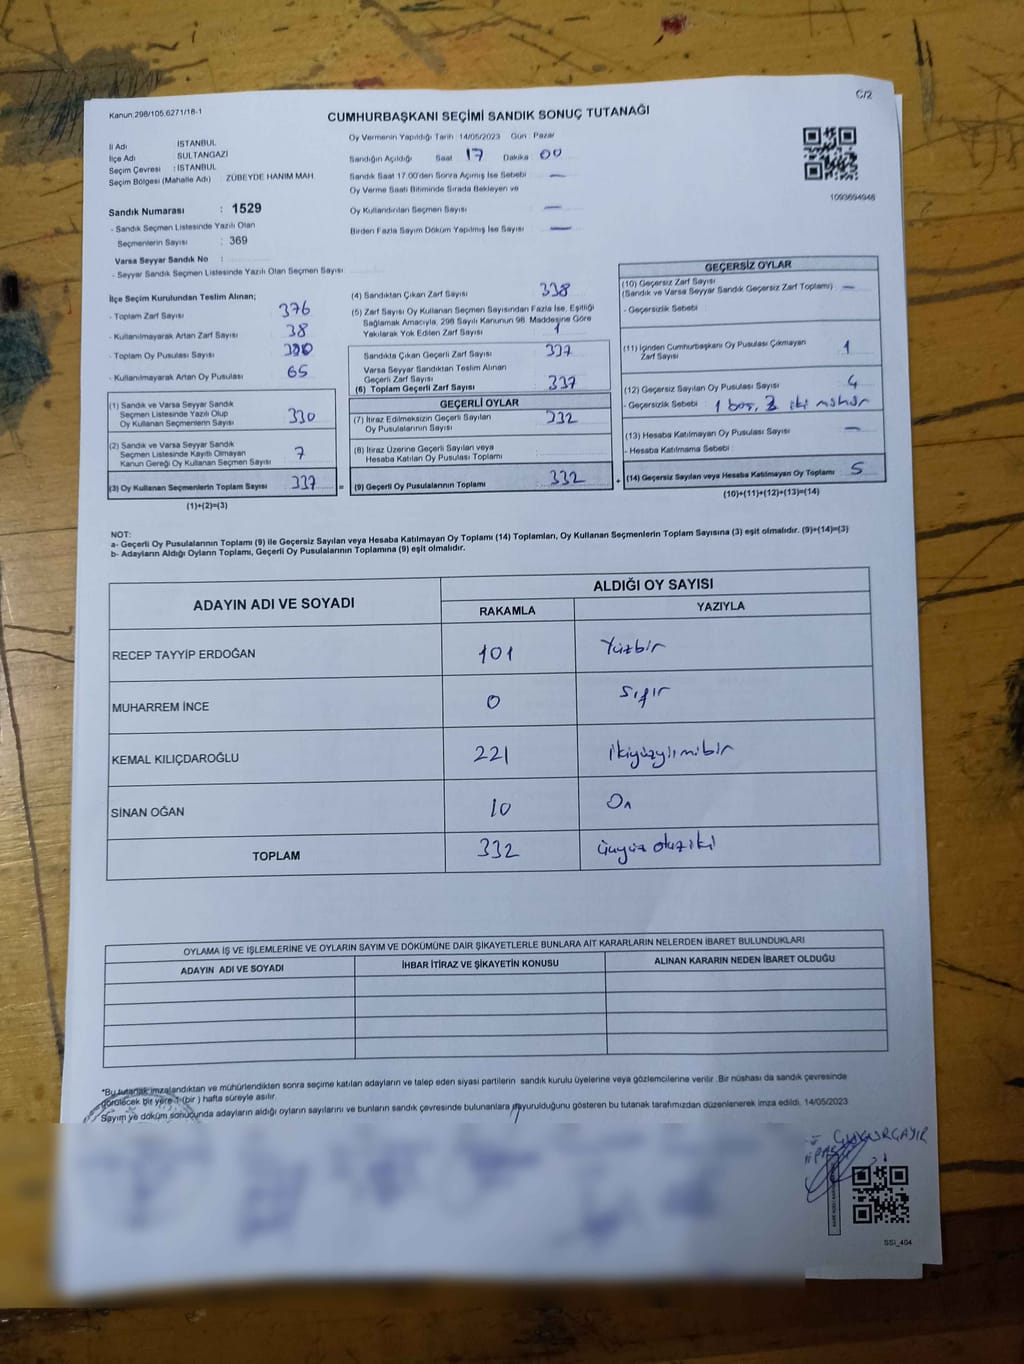 Kanun:298/105,6271/18-1
C/2
CUMHURBAŞKANI SEÇİMİ SANDIK SONUÇ TUTANAĞI
İl Adı : İSTANBUL
İlçe Adı : SULTANGAZİ
Seçim Çevresi : İSTANBUL
Seçim Bölgesi (Mahalle Adı) : ZÜBEYDE HANIM MAH.
Oy Vermenin Yapıldığı Tarih :14/05/2023 Gün : Pazar
Sandığın Açıldığı Saat 17 Dakika 00
Sandık Saat 17.00'den Sonra Açılmış İse Sebebi —
Oy Verme Saati Bitiminde Sırada Bekleyen ve
Oy Kullandırılan Seçmen Sayısı —
Birden Fazla Sayım Döküm Yapılmış İse Sayısı —
1093694946
Sandık Numarası : 1529
- Sandık Seçmen Listesinde Yazılı Olan
Seçmenlerin Sayısı : 369
Varsa Seyyar Sandık No :
- Seyyar Sandık Seçmen Listesinde Yazılı Olan Seçmen Sayısı:
İlçe Seçim Kurulundan Teslim Alınan;
- Toplam Zarf Sayısı : 376
- Kullanılmayarak Artan Zarf Sayısı : 38
- Toplam Oy Pusulası Sayısı :
- Kullanılmayarak Artan Oy Pusulası : 65
(1) Sandık ve Varsa Seyyar Sandık
Seçmen Listesinde Yazılı Olup
Oy Kullanan Seçmenlerin Sayısı : 330
(2) Sandık ve Varsa Seyyar Sandık
Seçmen Listesinde Kayıtlı Olmayan
Kanun Gereği Oy Kullanan Seçmen Sayısı : 7
(3) Oy Kullanan Seçmenlerin Toplam Sayısı : 337
(1)+(2)=(3)
(4) Sandıktan Çıkan Zarf Sayısı : 338
(5) Zarf Sayısı Oy Kullanan Seçmen Sayısından Fazla İse, Eşitliği
Sağlamak Amacıyla, 298 Sayılı Kanunun 98. Maddesine Göre
Yakılarak Yok Edilen Zarf Sayısı : 1
Sandıkta Çıkan Geçerli Zarf Sayısı : 337
Varsa Seyyar Sandıktan Teslim Alınan
Geçerli Zarf Sayısı
(6) Toplam Geçerli Zarf Sayısı : 337
GEÇERLİ OYLAR
(7) İtiraz Edilmeksizin Geçerli Sayılan
Oy Pusulalarının Sayısı : 332
(8) İtiraz Üzerine Geçerli Sayılan veya
Hesaba Katılan Oy Pusulası Toplamı :
= (9) Geçerli Oy Pusulalarının Toplamı : 332
GEÇERSİZ OYLAR
(10) Geçersiz Zarf Sayısı
(Sandık ve Varsa Seyyar Sandık Geçersiz Zarf Toplamı) : —
- Geçersizlik Sebebi :
(11) İçinden Cumhurbaşkanı Oy Pusulası Çıkmayan
Zarf Sayısı : 1
(12) Geçersiz Sayılan Oy Pusulası Sayısı : 4
- Geçersizlik Sebebi : 1 boş, 3 iki mühür
(13) Hesaba Katılmayan Oy Pusulası Sayısı : —
- Hesaba Katılmama Sebebi :
+ (14) Geçersiz Sayılan veya Hesaba Katılmayan Oy Toplamı : 5
(10)+(11)+(12)+(13)=(14)
NOT:
a- Geçerli Oy Pusulalarının Toplamı (9) ile Geçersiz Sayılan veya Hesaba Katılmayan Oy Toplamı (14) Toplamları, Oy Kullanan Seçmenlerin Toplam Sayısına (3) eşit olmalıdır. (9)+(14)=(3)
b- Adayların Aldığı Oyların Toplamı, Geçerli Oy Pusulalarının Toplamına (9) eşit olmalıdır.
ADAYIN ADI VE SOYADI
ALDIĞI OY SAYISI
RAKAMLA YAZIYLA
RECEP TAYYİP ERDOĞAN 101 Yüzbir
MUHARREM İNCE 0 Sıfır
KEMAL KILIÇDAROĞLU 221 ikiyüzyirmibir
SİNAN OĞAN 10 On
TOPLAM 332 üçyüz otuziki
OYLAMA İŞ VE İŞLEMLERİNE VE OYLARIN SAYIM VE DÖKÜMÜNE DAİR ŞİKAYETLERLE BUNLARA AİT KARARLARIN NELERDEN İBARET BULUNDUKLARI
ADAYIN ADI VE SOYADI İHBAR İTİRAZ VE ŞİKAYETİN KONUSU ALINAN KARARIN NEDEN İBARET OLDUĞU
*Bu tutanak imzalandıktan ve mühürlendikten sonra seçime katılan adayların ve talep eden siyasi partilerin sandık kurulu üyelerine veya gözlemcilerine verilir .Bir nüshası da sandık çevresinde
görülecek bir yere 1 (bir ) hafta süreyle asılır.
Sayım ve döküm sonucunda adayların aldığı oyların sayılarını ve bunların sandık çevresinde bulunanlara duyurulduğunu gösteren bu tutanak tarafımızdan düzenlenerek imza edildi. 14/05/2023
SSI_404